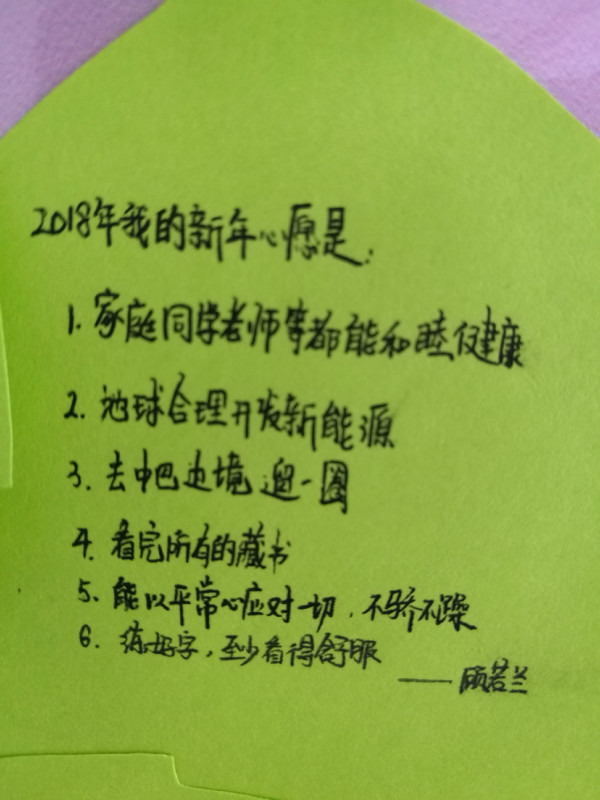 2018年我的新年心愿是:
1. 家庭同学老师等都能和睦健康
2. 地球合理开发新能源
3. 去中巴边境遛一圈
4. 看完所有的藏书
5. 能以平常心应对一切，不骄不躁
6. 练好字，至少看得舒服
——顾若兰